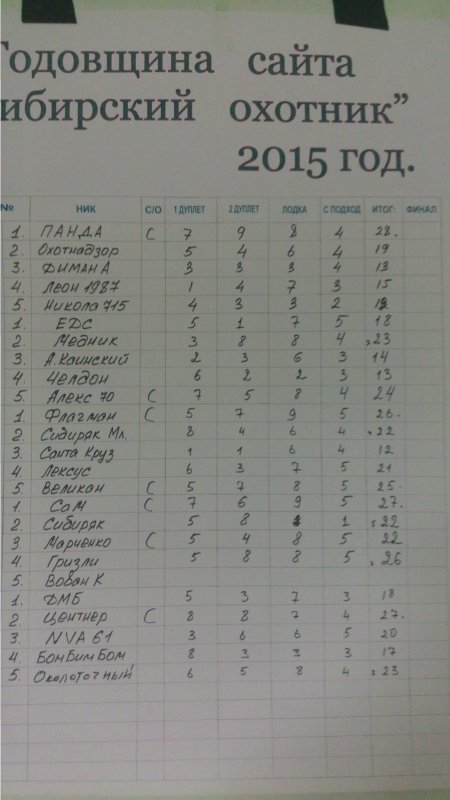 Годовщина сайта
ибирский охотник”
2015 год.
№ НИК С/О 1 ДУПЛЕТ 2 ДУПЛЕТ ЛОДКА С ПОДХОД ИТОГ: ФИНАЛ
1. ПАНДА С 7 9 8 4 28.
2. Охотнадзор 5 4 6 4 19
3. ДИМАН А 3 3 3 4 13
4. Леон 1987 1 4 7 3 15
5. Никола 715 4 3 3 2
1. ЕДС 5 1 7 5 18
2. Медник 3 8 8 4 23
3. А. Каинский 2 3 6 3 14
4. Челдон 6 2 2 3 13
5. Алекс 70 С 7 5 8 4 24
1. Флагман С 5 7 9 5 26.
2. Сибиряк Мл. 8 4 6 4 22
3. Санта Круз 1 1 6 4 12
4. Лексус 6 3 7 5 21
5. Великан С 5 7 8 5 25.
1. СаМ С 7 6 9 5 27.
2. Сибиряк 5 8 1 22
3. Марченко С 5 4 8 5 22
4. Гризли 5 8 8 5 26
5. Вован К
1. ДМБ 5 3 7 3 18
2. Центнер С 8 8 7 4 27.
3. NVA 61 3 6 6 5 20
4. БомБимБом 8 3 3 3 17
5. Околоточный 6 5 8 4 23